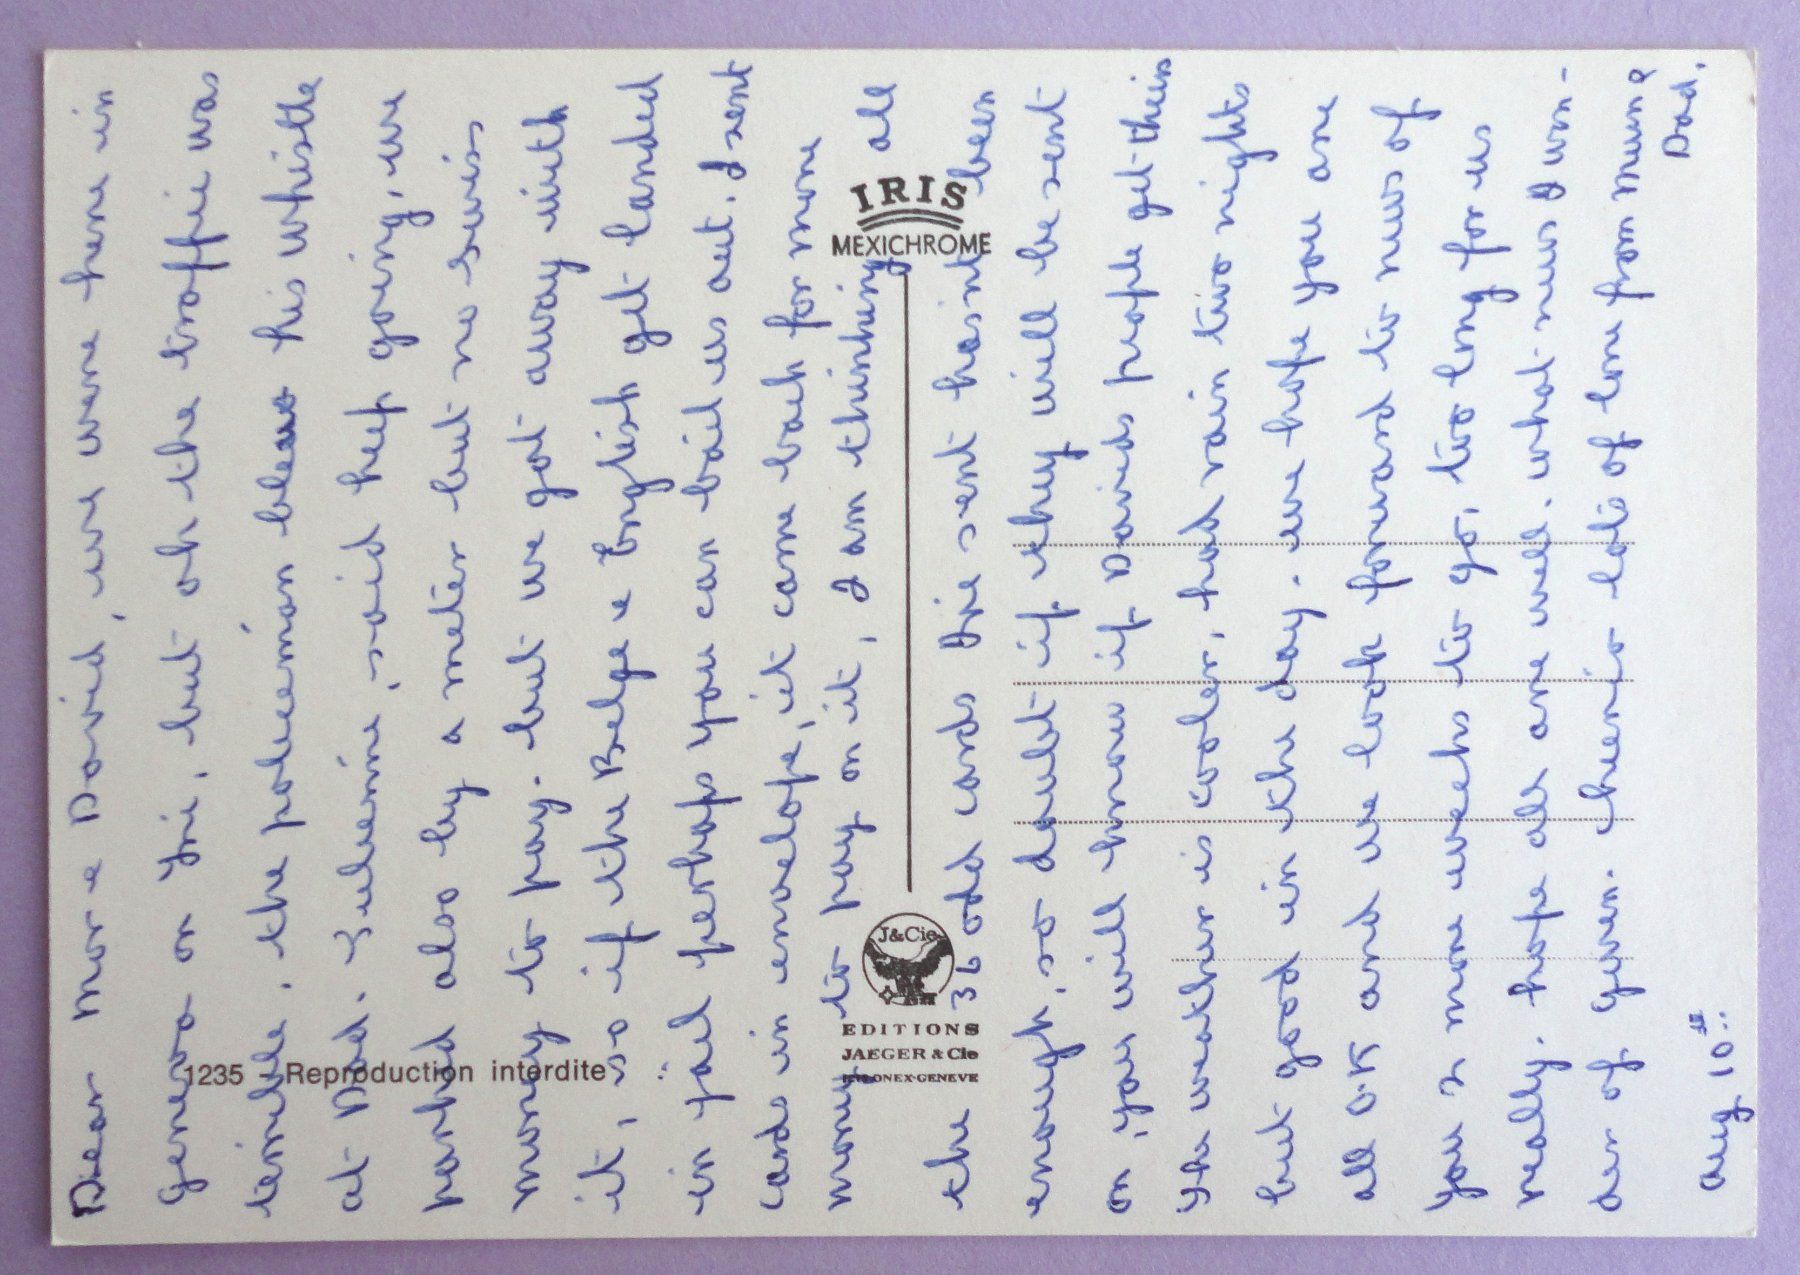 Dear Mor e David, we were here in
Geneva on Fri, but oh the traffic was
terrible, the policeman blew his whistle
at Dad. Sulvenie, said keep going, we
parked also by a meter but no Swiss
money to pay. but we got away with
it, so if the Belge e English get landed
in jail perhaps you can bail us out. I sent
cards in envelope, it came back for more
money to pay on it, I am thinking all
the 36 odd cards I've sent hasnt been
enough, so doubt if they will be sent
on, you will know if Davids people get theis
The weather is cooler, had rain two nights
but good in the day. we hope you are
all O.K and we look forward to news of
you 2 more weeks to go, too long for us
really. hope all are well. what news I won-
der of Gwen. cheerio lots of love from Mum e
Dad.
Aug 10th..
IRIS
MEXICHROME
J&Cie
EDITIONS
JAEGER & Cie
GENEVE
1235 - Reproduction interdite